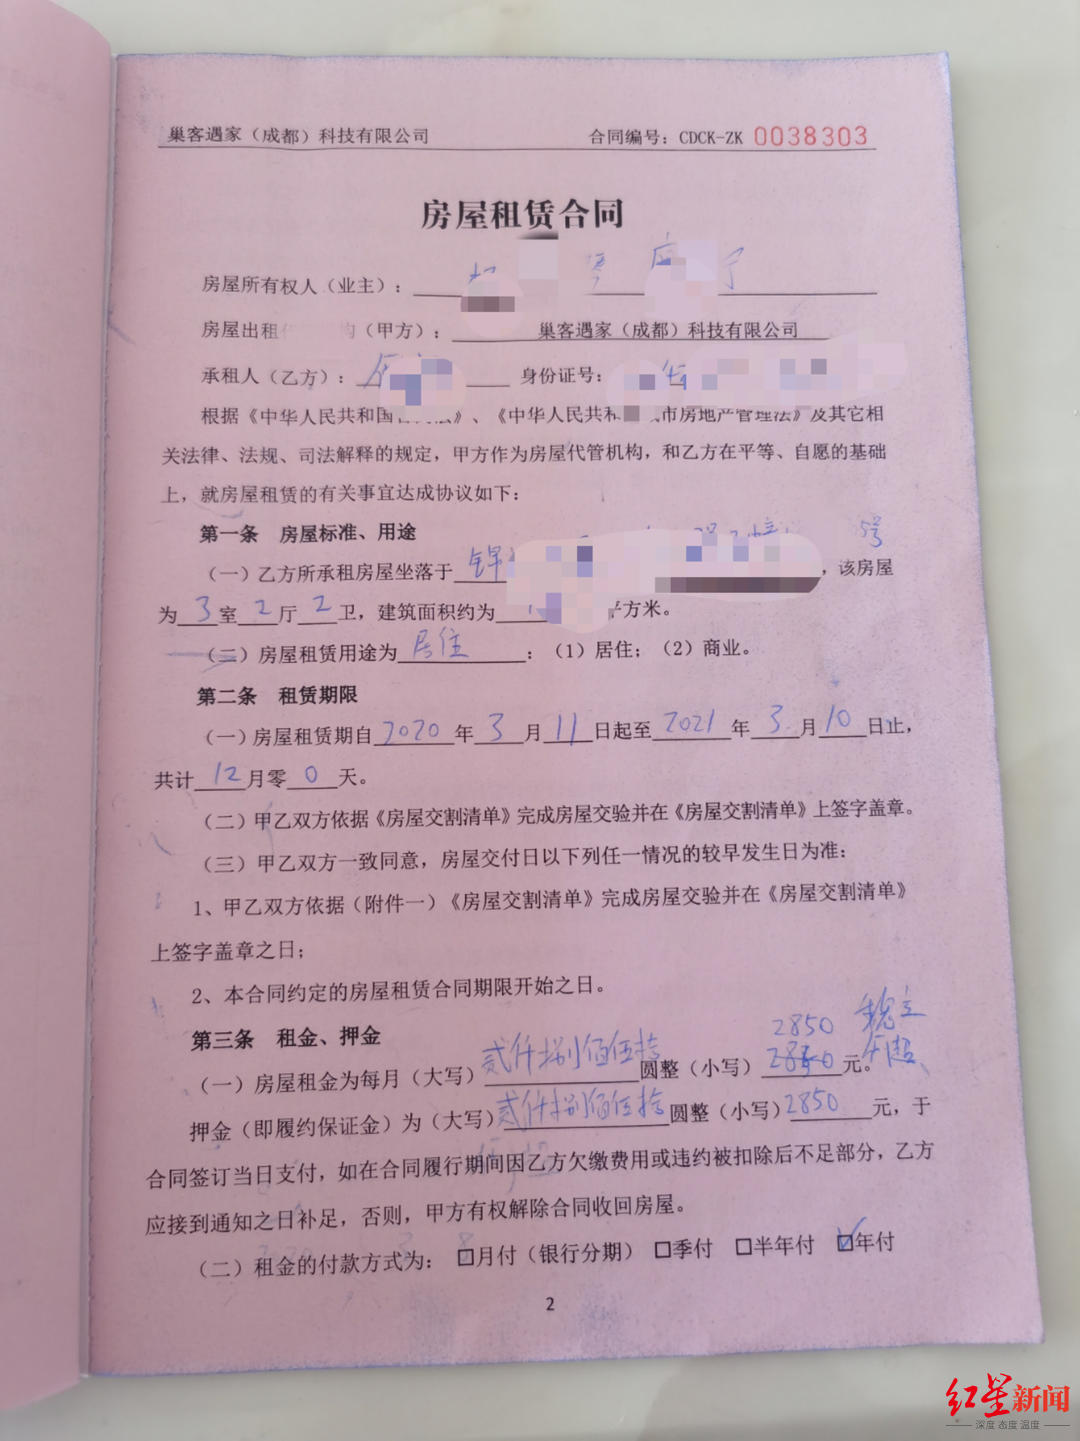 巢客遇家（成都）科技有限公司 合同编号：CDCK-ZK 0038303
房屋租赁合同
房屋所有权人（业主）：
房屋出租 （甲方）： 巢客遇家（成都）科技有限公司
承租人（乙方）： 身份证号：
根据《中华人民共和国 法》、《中华人民共和 市房地产管理法》及其它相
关法律、法规、司法解释的规定，甲方作为房屋代管机构，和乙方在平等、自愿的基础
上，就房屋租赁的有关事宜达成协议如下：
第一条 房屋标准、用途
号
（一）乙方所承租房屋坐落于 锦 ，该房屋
为 3 室 2 厅 2 卫，建筑面积约为 平方米。
（二）房屋租赁用途为 居住 ：（1）居住；（2）商业。
第二条 租赁期限
（一）房屋租赁期自 2020 年 3 月 11 日起至 2021 年 3 月 10 日止，
共计 12 月零 0 天。
（二）甲乙双方依据《房屋交割清单》完成房屋交验并在《房屋交割清单》上签字盖章。
（三）甲乙双方一致同意，房屋交付日以下列任一情况的较早发生日为准：
1、甲乙双方依据（附件一）《房屋交割清单》完成房屋交验并在《房屋交割清单》
上签字盖章之日；
2、本合同约定的房屋租赁合同期限开始之日。
第三条 租金、押金
2850
（一）房屋租金为每月（大写） 贰仟捌佰伍拾 圆整（小写） 元。
押金（即履约保证金）为（大写） 贰仟捌佰伍拾 圆整（小写） 2850 元，于
合同签订当日支付，如在合同履行期间因乙方欠缴费用或违约被扣除后不足部分，乙方
应接到通知之日补足，否则，甲方有权解除合同收回房屋。
（二）租金的付款方式为： □月付（银行分期） □季付 □半年付 ☑年付
2
红星新闻
深度 态度 温度